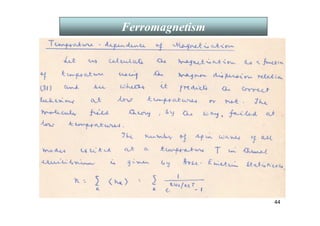 Ferromagnetism
Temperature-dependence of Magnetization
Let us calculate the magnetization as a function
of temperature using the magnon dispersion relation
(31) and see whether it predicts the correct
behaviour at low temperatures or not. The
molecule field theory, by the way, failed at
low temperatures.
The number of spin waves of all
modes excited at a temperature T in thermal
equilibrium is given by Bose-Einstein statistics,
n = Σ_k ⟨n_k⟩ = Σ_k 1 / (e^{ħω_k/k_BT} - 1)
44